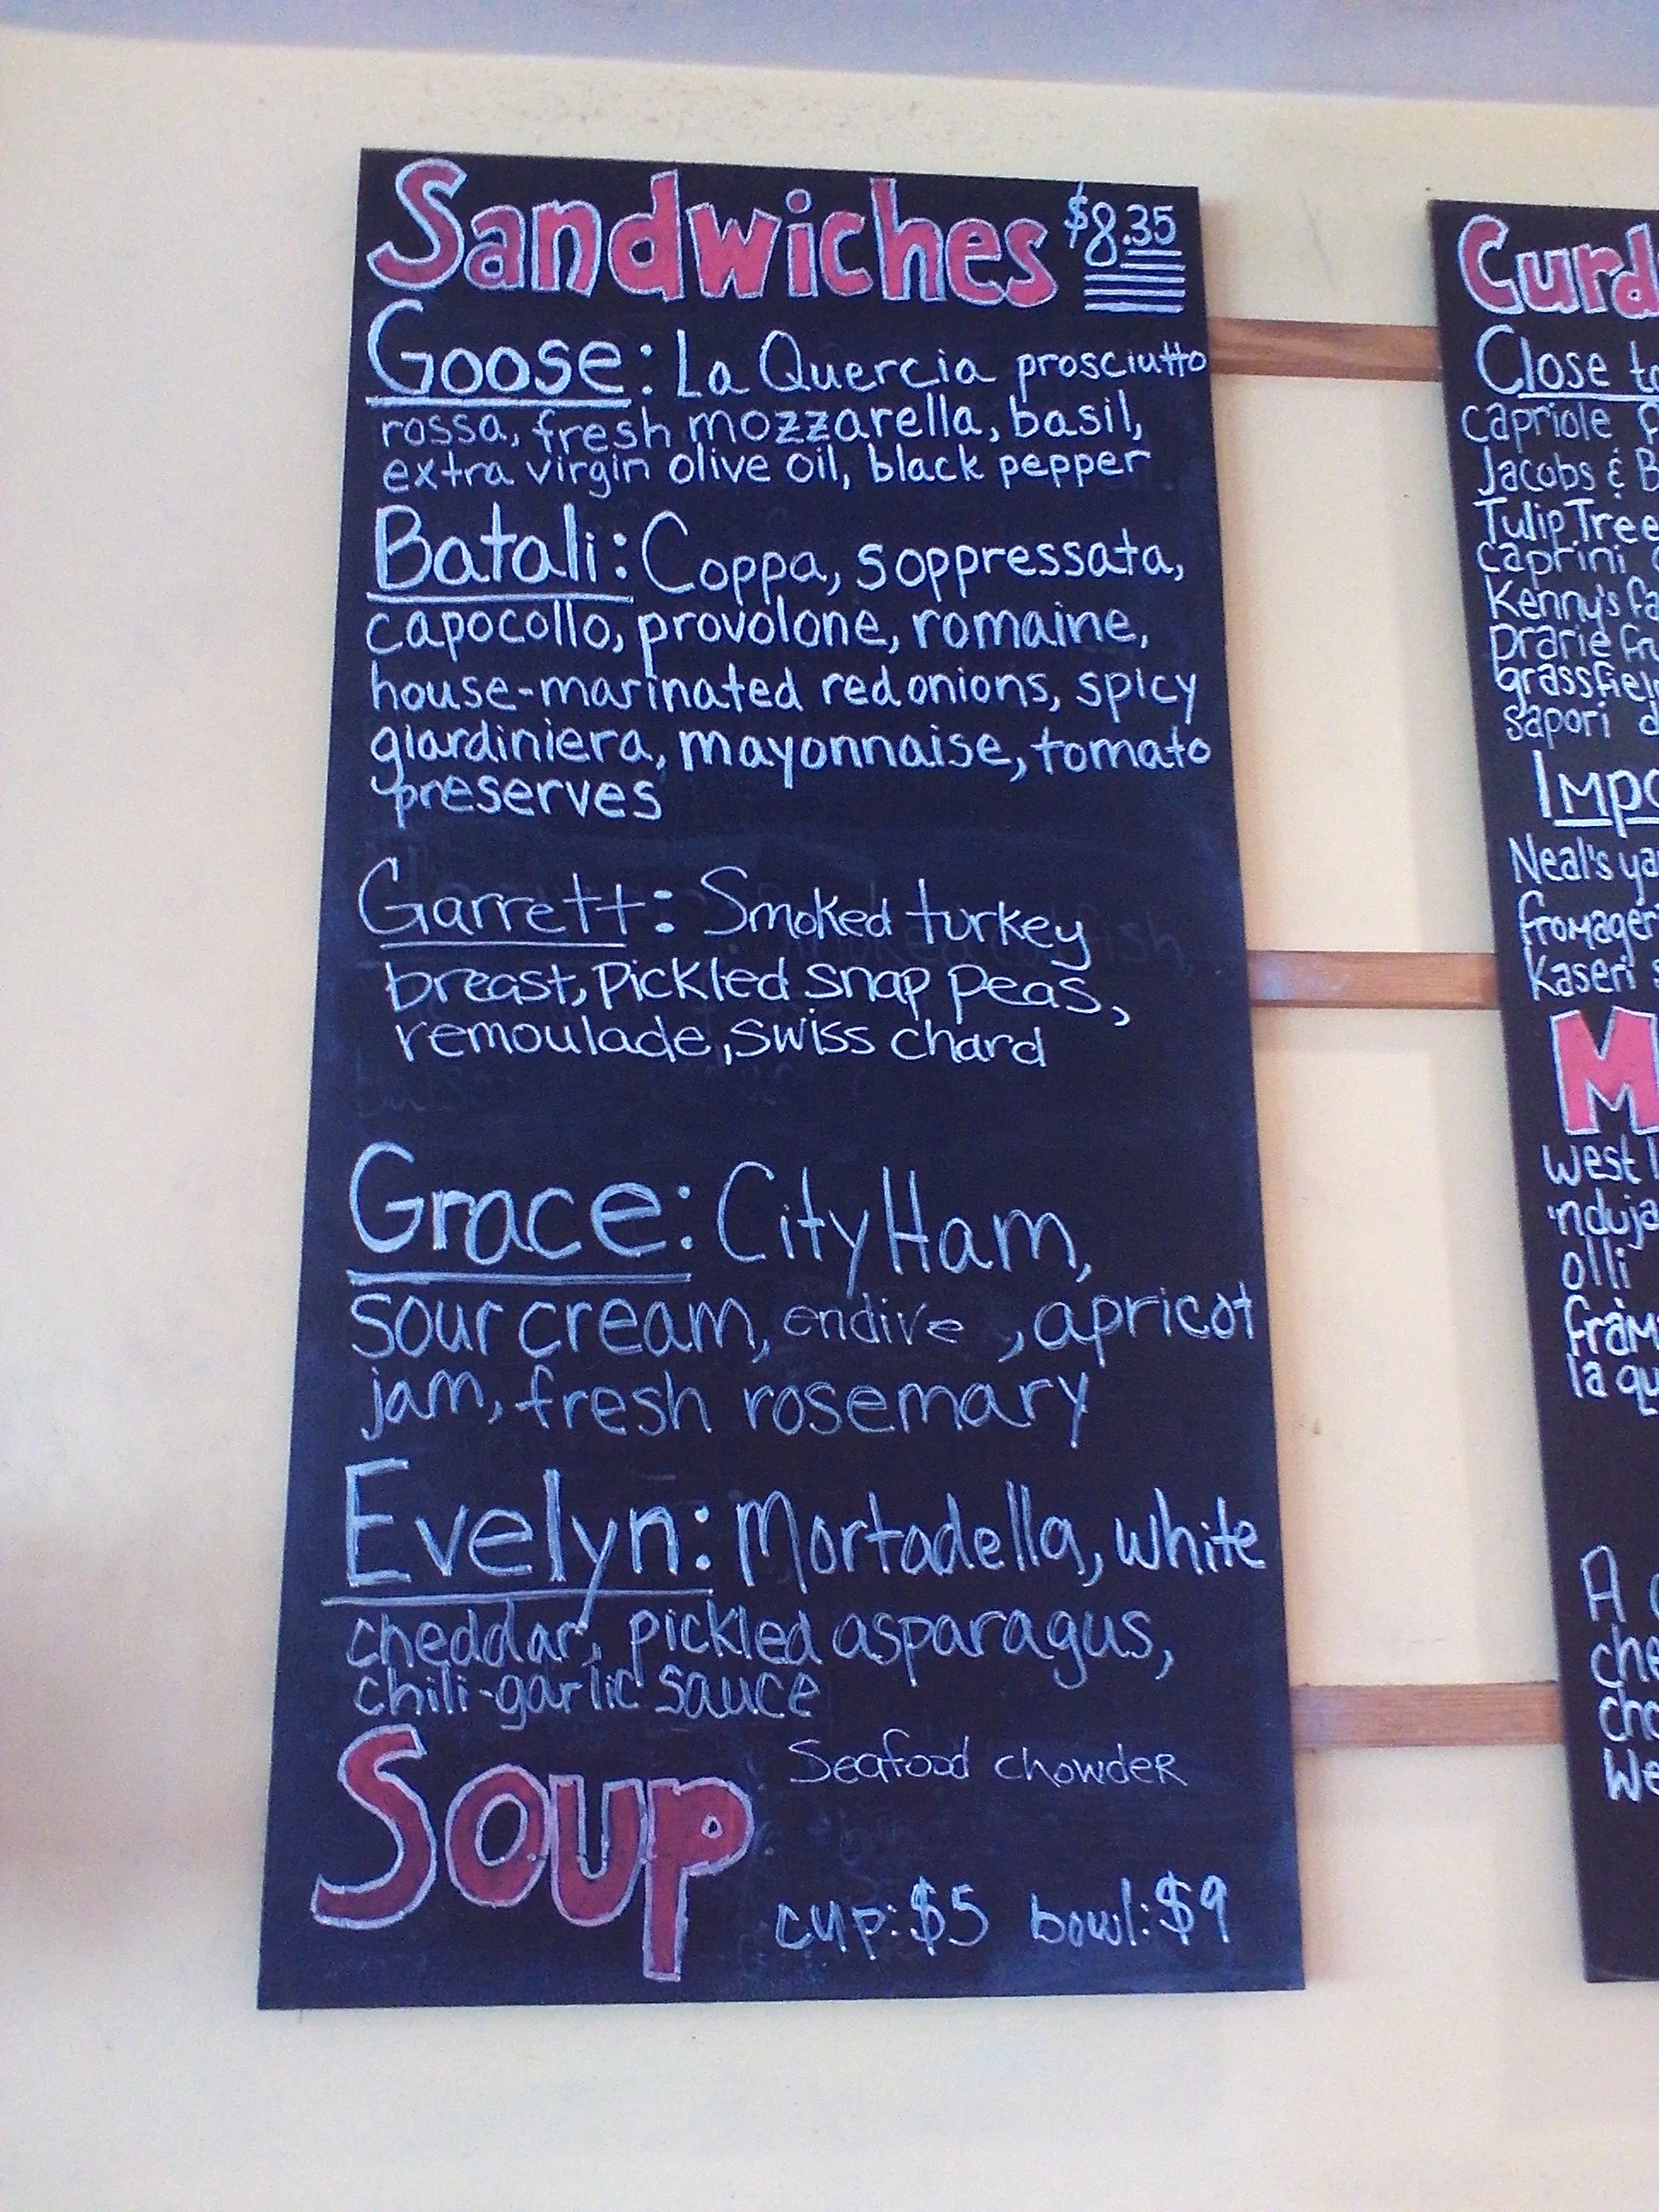 Sandwiches $8.35
Goose: La Quercia prosciutto
rossa, fresh mozzarella, basil,
extra virgin olive oil, black pepper
Batali: Coppa, soppressata,
capocollo, provolone, romaine,
house-marinated red onions, spicy
giardiniera, mayonnaise, tomato
preserves
Garrett: Smoked turkey
breast, pickled snap peas,
remoulade, swiss chard
Grace: City Ham,
sour cream, endive , apricot
jam, fresh rosemary
Evelyn: Mortadella, white
cheddar, pickled asparagus,
chili-garlic sauce
Soup Seafood chowder
cup: $5 bowl: $9
Curd
Close to
capriole
Jacobs & B
Tulip Tree
caprini
Kenny's fa
prarie fr
grassfiel
sapori d
Impo
Neal's ya
fromager
Kaseri s
M
west l
'nduja
olli
fram
la qu
A
che
cho
We